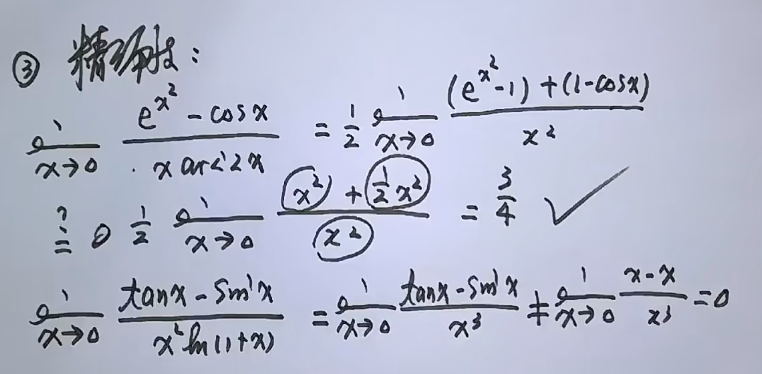 ③ 精确性:
lim x→0 (e^(x²) - cosx)/(x arc 2x) = 1/2 lim x→0 ((e^(x²)-1)+(1-cosx))/x²
≟ 1/2 lim x→0 (x² + 1/2 x²)/x² = 3/4 ✓
lim x→0 (tanx - sinx)/(x² ln(1+x)) = lim x→0 (tanx - sinx)/x³ ≠ lim x→0 (x-x)/x³ = 0